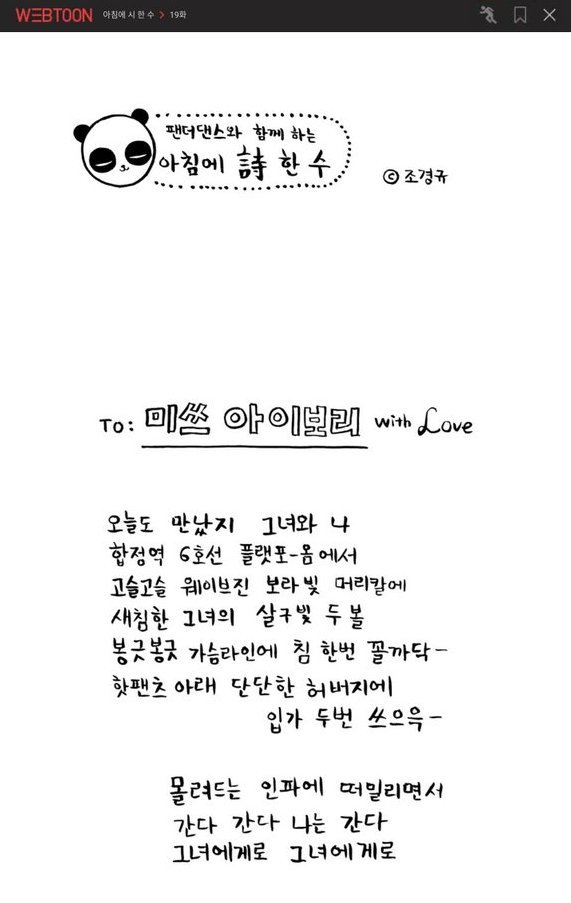 WEBTOON 아침에 시 한 수 > 19화
팬더댄스와 함께 하는
아침에 詩 한 수
© 조경규
To: 미쓰 아이보리 with Love
오늘도 만났지 그녀와 나
합정역 6호선 플랫포-옴에서
고슬고슬 웨이브진 보라빛 머리칼에
새침한 그녀의 살구빛 두 볼
봉긋봉긋 가슴라인에 침 한번 꼴까닥-
핫팬츠 아래 단단한 허버지에
입가 두번 쓰으윽-
몰려드는 인파에 떠밀리면서
간다 간다 나는 간다
그녀에게로 그녀에게로